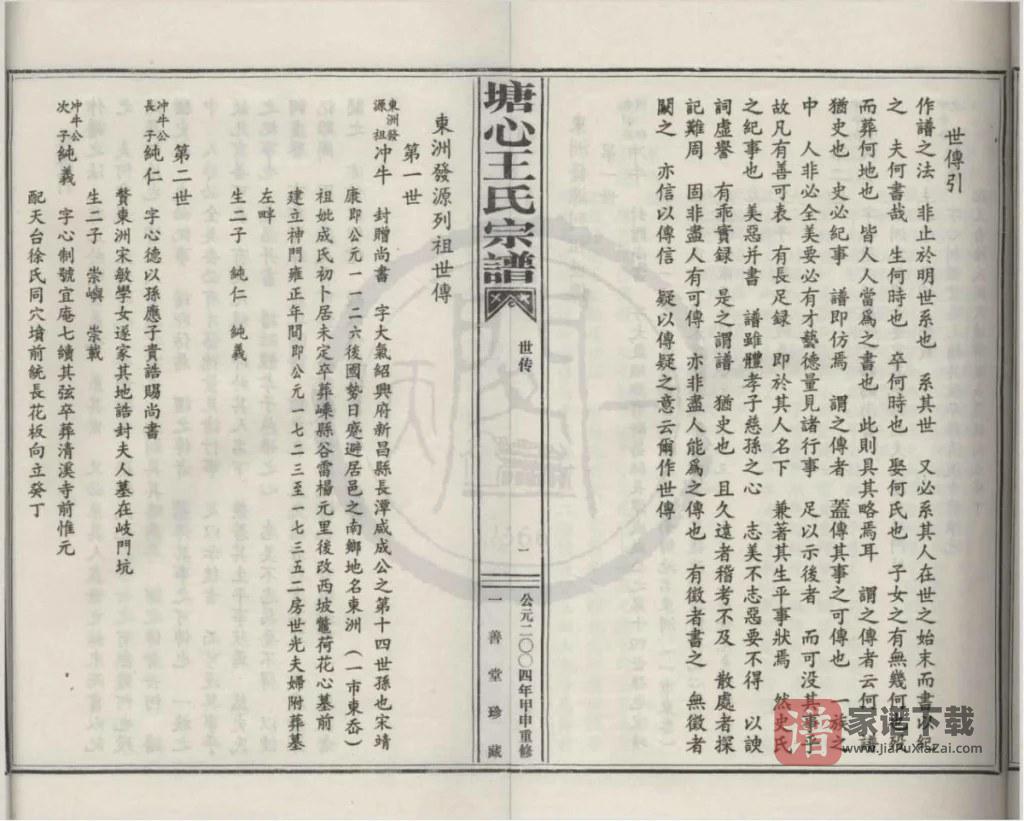 世傳引
作譜之法　非止於明世系也　系其世　又必系其人在世之始末而書以紀
之　夫何書哉　生何時也　卒何時也　娶何氏也　子女之有無幾何也　歿
而葬何地也　皆人人當爲之書也　此則具其略焉耳　謂之傳者云何　譜
猶史也　史必紀事　譜即仿焉　謂之傳者　蓋傳其事之可傳也　一族之
中　人非必全美要必有才藝德量見諸行事　足以示後者　而可没其事乎
故凡有善可表　有長足録　即於其人名下　兼著其生平事狀焉　然史氏
之紀事也　美惡并書　譜雖體孝子慈孫之心　志美不志惡要不得　以諛
詞虛譽　有乖實録　是之謂譜　猶史也　且久遠者稽考不及　散處者探
記難周　固非盡人有可傳　亦非盡人能爲之傳也　有徵者書之　無徵者
闕之　亦信以傳信　疑以傳疑之意云爾作世傳
塘心王氏宗譜
世传
一
公元二〇〇四年甲申重修
一善堂珍藏
東洲發源列祖世傳
第一世
東洲發源祖冲牛　封贈尚書　字大氣紹興府新昌縣長潭咸成公之第十四世孫也宋靖
康即公元一一二六後國勢日蹙避居邑之南鄉地名東洲　（一市東岙）
祖妣成氏初卜居未定卒葬嵊縣谷雷楊元里後改西坡鼈荷花心墓前
建立神門雍正年間即公元一七二三至一七三五二房世光夫婦附葬墓
左畔
生二子　純仁　純義
第二世
冲牛公長子純仁　字心德以孫應子貴誥賜尚書
贅東洲宋敏學女遂家其地誥封夫人墓在岐門坑
生二子　崇嶼　崇載
冲牛公次子純義　字心制號宜庵七續其弦卒葬清溪寺前惟元
配天台徐氏同穴墳前統長花板向立癸丁
譜
家谱下载
www.JiaPuXiaZai.com